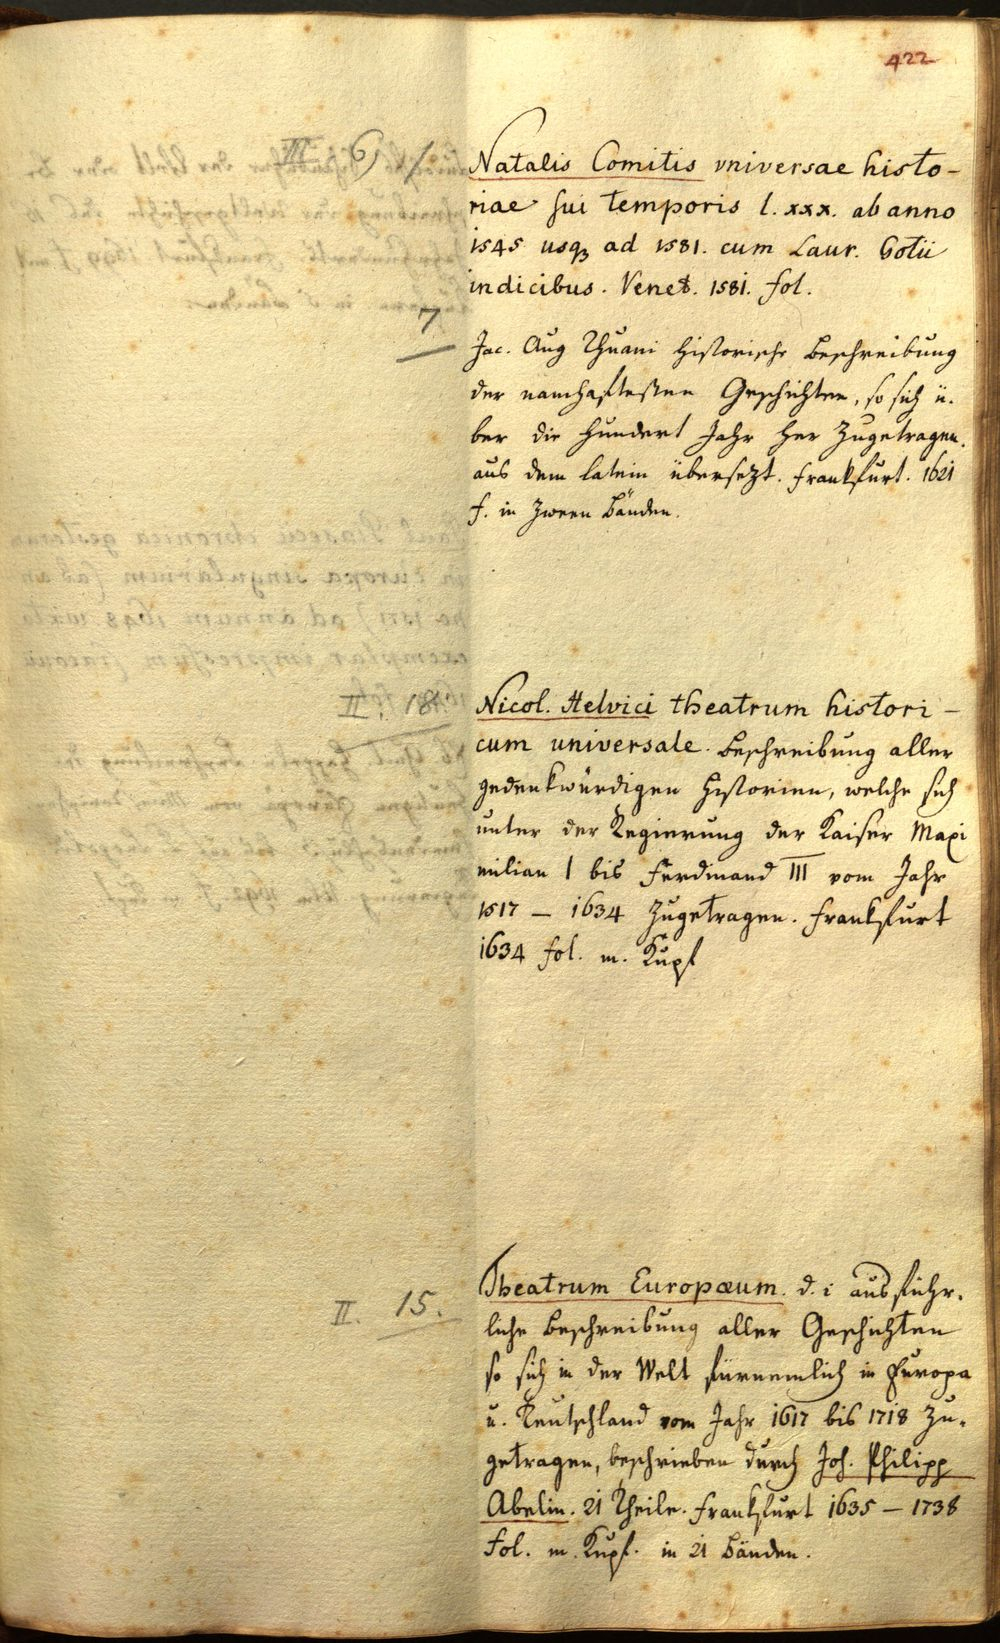 422
III 6)
Natalis Comitis vniversae histo-
riae sui temporis l. xxx. ab anno
1545 usq3 ad 1581. cum Laur. Gotii
indicibus. Venet. 1581. fol.
7
Jac. Aug Thuani Historische Beschreibung
der namhaftesten Geschichten, so sich ü-
ber die hundert Jahr her zugetragen.
aus dem latein übersezt. Frankfurt. 1621
f. in zween Bänden.
II. 18.
Nicol. Helvici theatrum histori-
cum universale. Beschreibung aller
gedenkwürdigen Historien, welche sich
unter der Regierung der Kaiser Maxi
milian I bis Ferdinand III vom Jahr
1517 – 1634 zugetragen. Frankfurt
1634 fol. m. Kupf
II. 15.
Theatrum Europæum. d. i ausführ-
liche Beschreibung aller Geschichten
so sich in der Welt fürnemlich in Europa
u. Teutschland vom Jahr 1617 bis 1718 zu-
getragen, beschrieben durch Joh. Philipp
Abelin. 21 Theile. Frankfurt 1635 – 1738
fol. m. Kupf. in 21 Bänden.